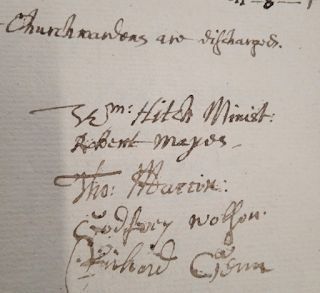 Churchwardens are discharged.
Wm: Hitch Minist:
Robert Mayes
Tho: Martin:
Godfrey Wolson.
Richard